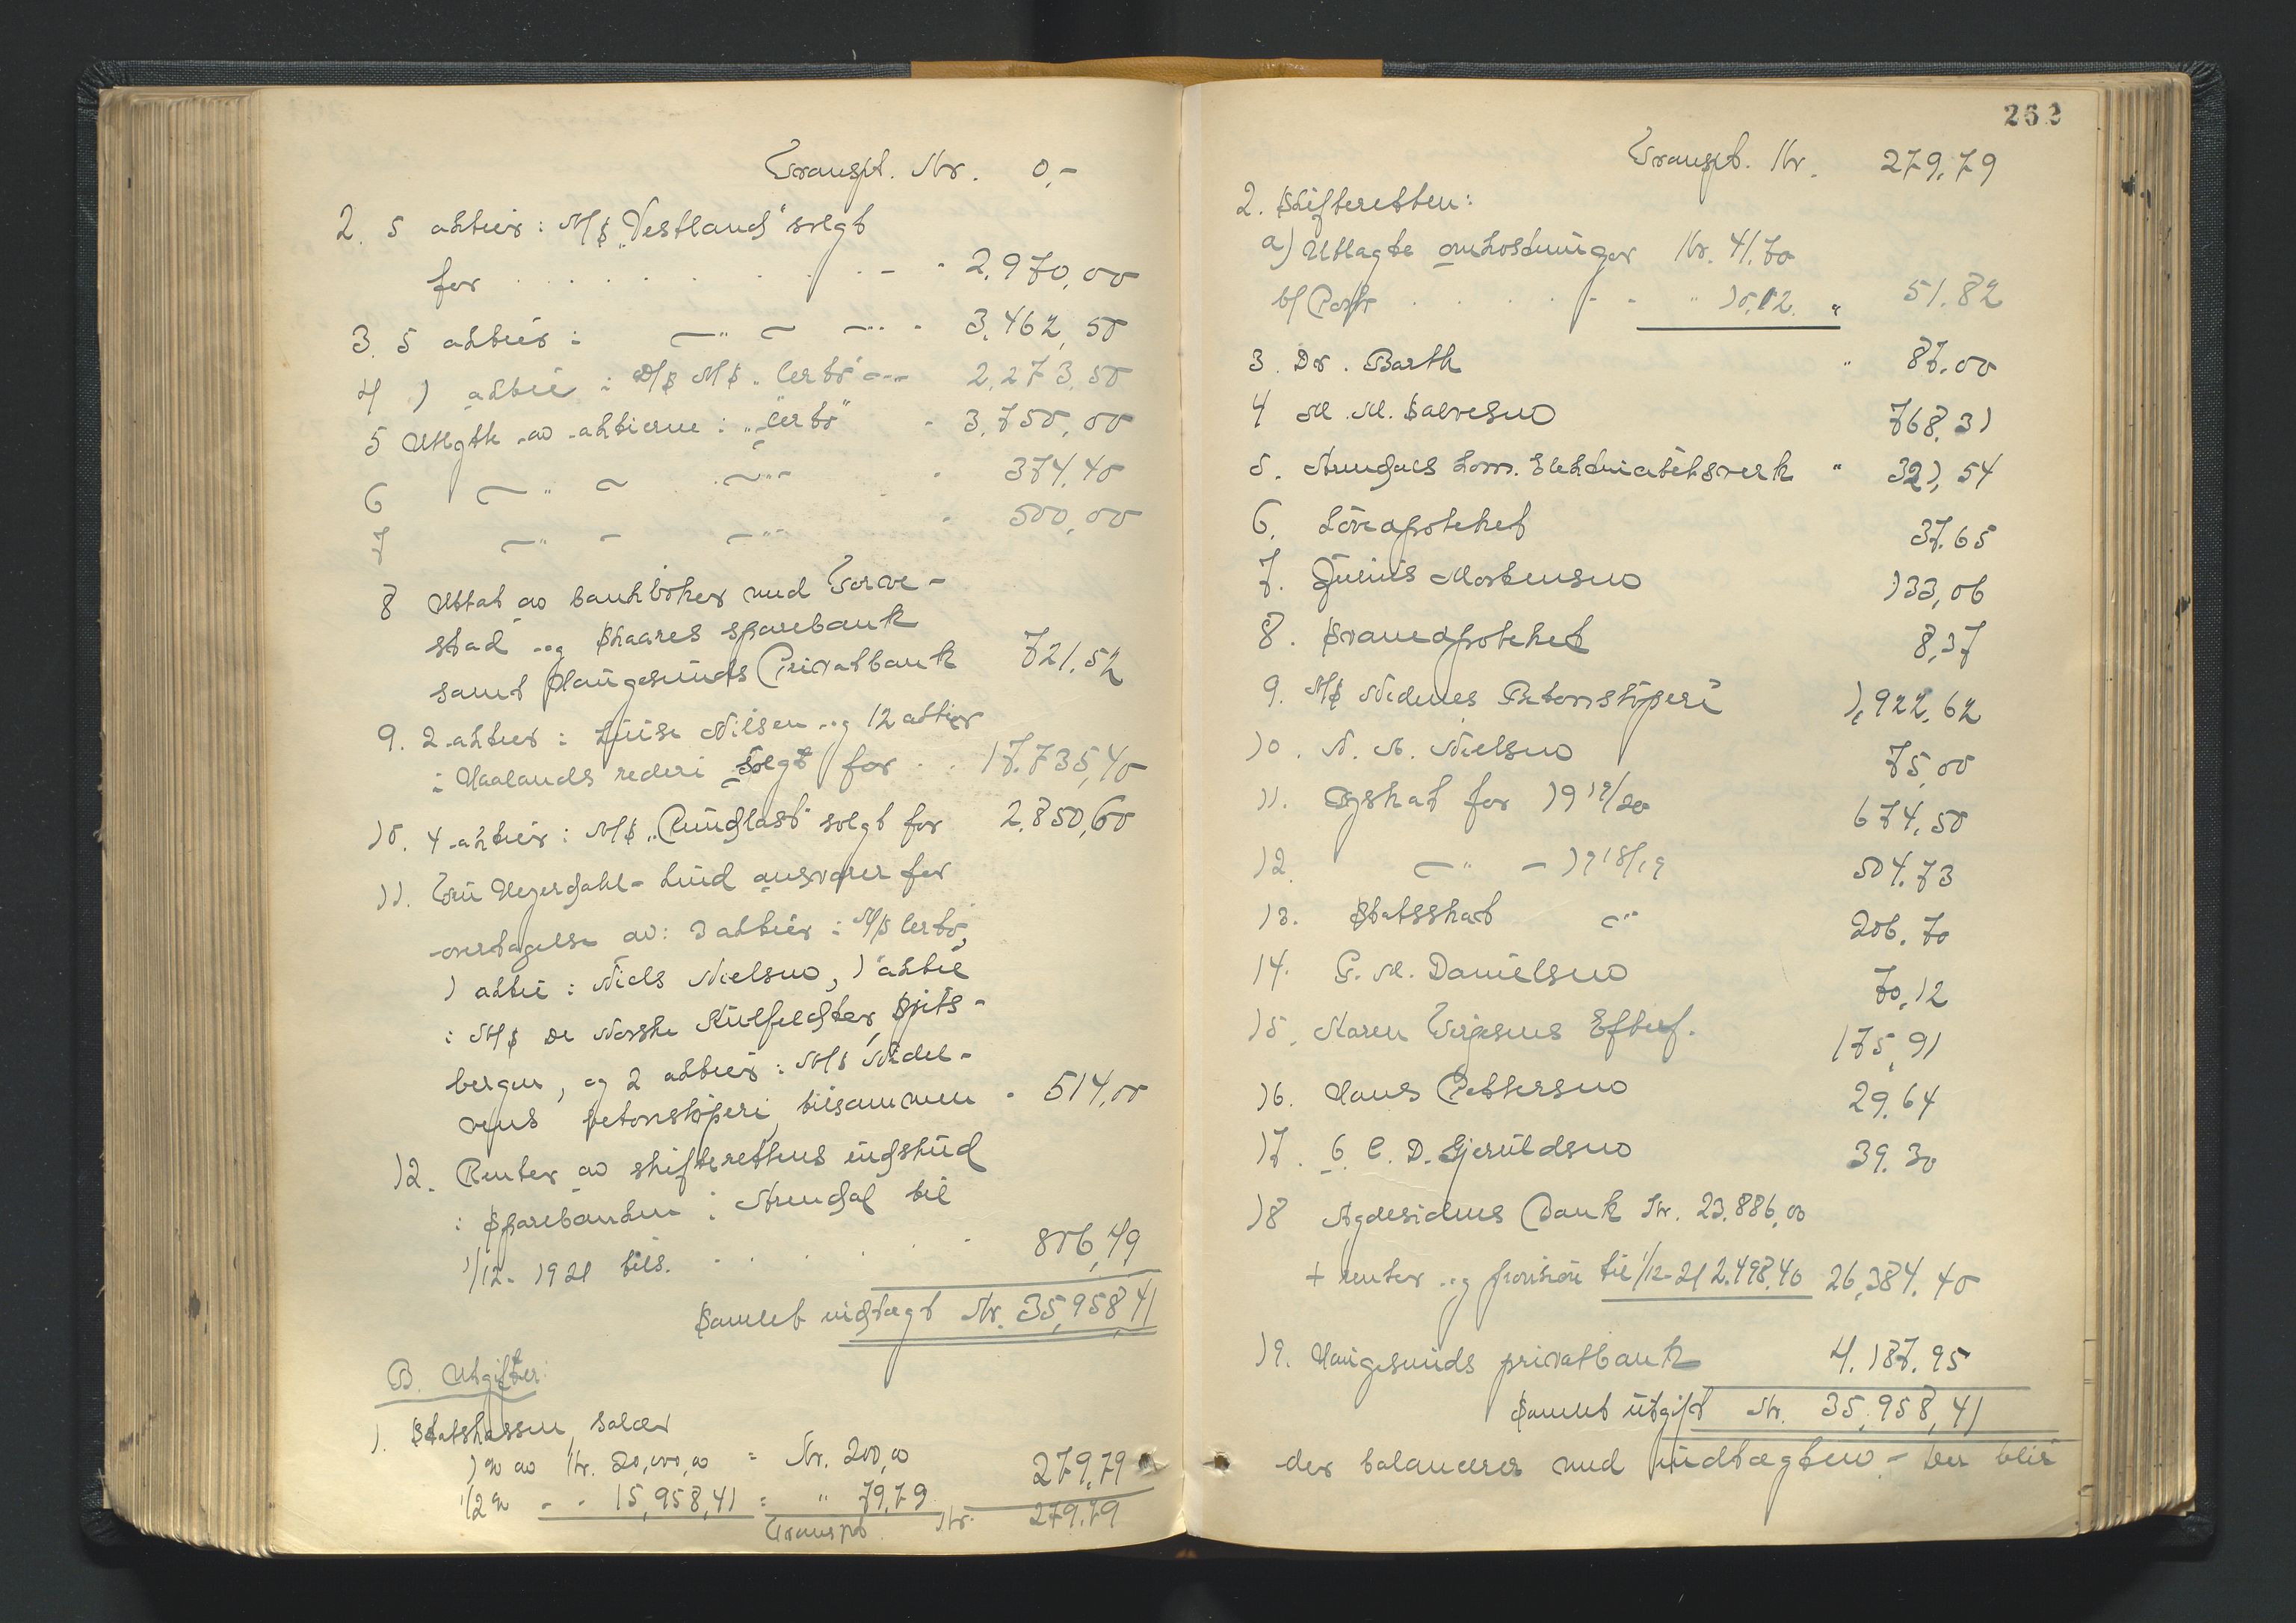 Transpt. Kr. 0,-
2. 5 aktier i A/S „Vestland" solgt
for . . . . . . . - - - 2.970,00
3. 5 aktier i —„— —„- - 3.462,50
4 1 aktie i D/S A/S „Certo" —„- 2.273,50
5 Utbytte av aktierne i „Certo" - 3.750,00
6 —„— —„- - 374,40
7 —„— —„- - 500,00
8 Uttat av bankbøker med Torve-
stad og Skaares sparebank
samt Haugesunds Privatbank 721,52
9. 2 aktier i Luise Nilsen og 12 aktier
i Haalands rederi solgt for . . 17.735,40
10. 4 aktier i A/S „Rundlast" solgt for 2.850,60
11. Fru Heyerdahl-Lund ansvarer for
overtagelse av: 3 aktier i A/S Certo,
1 aktie i Niels Nielsen, 1 aktie
i A/S De Norske Kulfelter, Spits-
bergen, og 2 aktier i A/S Nede-
nes betonstøperi, tilsammen - 514,00
12. Renter av skifterettens indskud
i Sparebanken i Arendal til
1/12-1921 tils. - . . . . . - 806,49
Samlet indtægt Kr. 35,958,41
B. Utgifter:
1. Statskassen, salær
1% av Kr. 20,000,00 = Kr. 200,00
1/2% - - 15,958,41 = „ 79,79 279,79
Transpt. Kr. 279.79
262
Transpt. Kr. 279,79
2. Skifteretten:
a) Utlagte omkostninger Kr. 41.70
b) Porto . . . . - - „ 10.12. „ 51.82
3. Dr. Barth „ 87.00
4 M. M. Salvesen 768.31
5. Arendals kom. Elektricitetsverk „ 321,54
6. Løveapoteket 37.65
7. Julius Mortensen 133,06
8. Svaneapoteket 8,37
9. A/S Nedenes Betonstøperi 1,922,62
10. N. M. Nielsen 75,00
11. Byskat for 1919/20 674,50
12. —„— - 1918/19 504.73
13. Statsskat —„- 206.70
14. G. M. Danielsen 70,12
15. Karen Terjesens Efterf. 175,91
16. Hans Pettersen 29.64
17. G. C. D. Gjeruldsen 39.30
18 Agdesidens Bank Kr. 23.886,00
+ renter og provision til 1/12-21 2.498.40 26,384.40
19. Haugesunds privatbank 4.187.95
Samlet utgift Kr. 35,958,41
der balancerer med indtægten. - Der blir